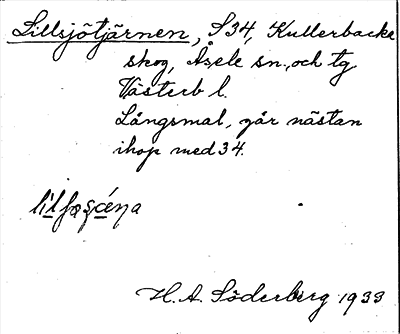 Lillsjötjärnen, S34, Kullerbacke
skog, Åsele sn., och tg
Västerb l.
Långsmal, går nästan
ihop med 34.
H. A. Söderberg 1933